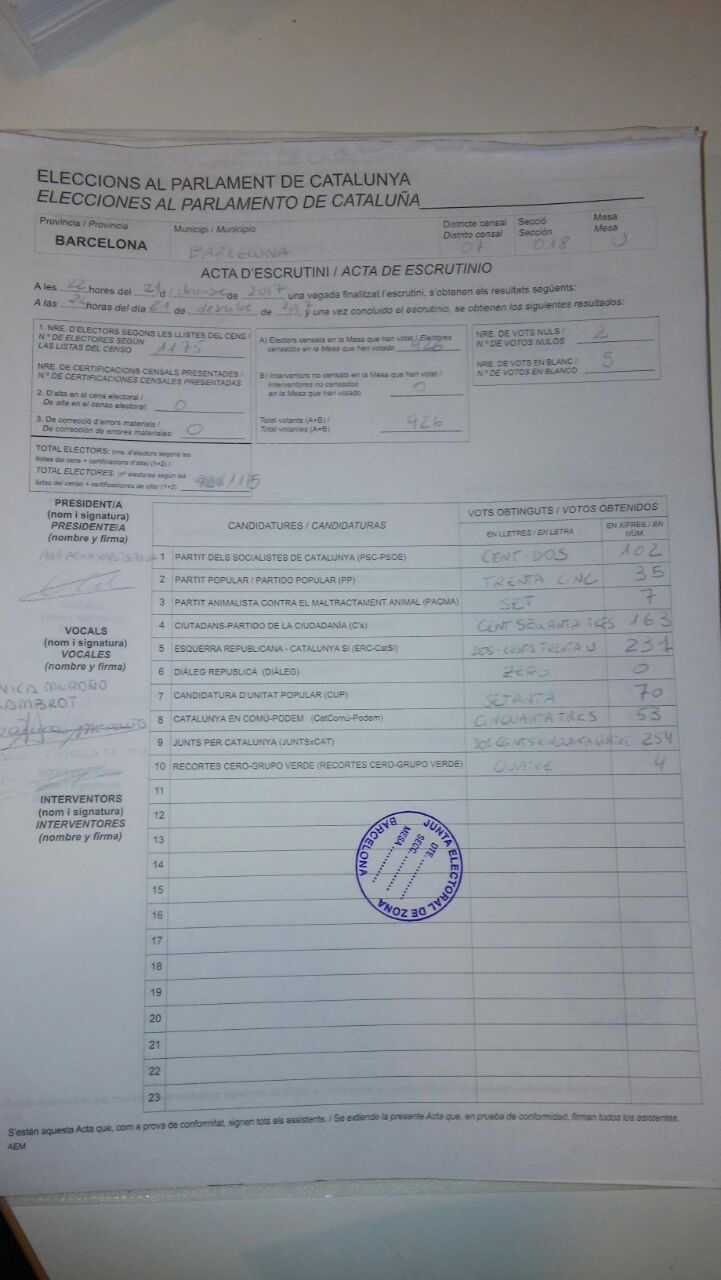 ELECCIONS AL PARLAMENT DE CATALUNYA
ELECCIONES AL PARLAMENTO DE CATALUÑA
Província / Provincia
BARCELONA
Municipi / Municipio
BARCELONA
Districte censal
Distrito censal
07
Secció
Sección
018
Mesa
Mesa
U
ACTA D'ESCRUTINI / ACTA DE ESCRUTINIO
A les 22 hores del 21 d de 2017, una vegada finalitzat l'escrutini, s'obtenen els resultats següents:
A las horas del día 21 de de 2017 y una vez concluido el escrutinio, se obtienen los siguientes resultados:
1. NRE. D'ELECTORS SEGONS LES LLISTES DEL CENS /
N.º DE ELECTORES SEGÚN
LAS LISTAS DEL CENSO 1175
NRE. DE CERTIFICACIONS CENSALS PRESENTADES /
N.º DE CERTIFICACIONES CENSALES PRESENTADAS
2. D'alta en el cens electoral /
De alta en el censo electoral: 0
3. De correcció d'errors materials /
De corrección de errores materiales: 0
TOTAL ELECTORS: (nre. d'electors segons les
llistes del cens + certificacions d'alta) (1+2) /
TOTAL ELECTORES: (nº electores según las
listas del censo + certificaciones de alta) (1+2) 1175
A) Electors censats en la Mesa que han votat / Electores
censados en la Mesa que han votado 926
B) Interventors no censats en la Mesa que han votat /
Interventores no censados
en la Mesa que han votado 0
Total votants (A+B) /
Total votantes (A+B) 926
NRE. DE VOTS NULS /
N.º DE VOTOS NULOS 2
NRE. DE VOTS EN BLANC /
N.º DE VOTOS EN BLANCO 5
PRESIDENT/A
(nom i signatura)
PRESIDENTE/A
(nombre y firma)
VOCALS
(nom i signatura)
VOCALES
(nombre y firma)
MEROÑO
LAMBROT
INTERVENTORS
(nom i signatura)
INTERVENTORES
(nombre y firma)
CANDIDATURES / CANDIDATURAS
VOTS OBTINGUTS / VOTOS OBTENIDOS
EN LLETRES / EN LETRA
EN XIFRES / EN NÚM.
1 PARTIT DELS SOCIALISTES DE CATALUNYA (PSC-PSOE) CENT-DOS 102
2 PARTIT POPULAR / PARTIDO POPULAR (PP) TRENTA CINC 35
3 PARTIT ANIMALISTA CONTRA EL MALTRACTAMENT ANIMAL (PACMA) SET 7
4 CIUTADANS-PARTIDO DE LA CIUDADANÍA (C's) CENT SEIXANTA TRES 163
5 ESQUERRA REPUBLICANA - CATALUNYA SI (ERC-CatSI) DOS-CENTS TRENTA U 231
6 DIÀLEG REPUBLICÀ (DIÀLEG) ZERO 0
7 CANDIDATURA D'UNITAT POPULAR (CUP) SETANTA 70
8 CATALUNYA EN COMÚ-PODEM (CatComú-Podem) CINQUANTA TRES 53
9 JUNTS PER CATALUNYA (JUNTSxCAT) DOS CENTS CINQUANTA QUATRE 254
10 RECORTES CERO-GRUPO VERDE (RECORTES CERO-GRUPO VERDE) QUATRE 4
11
12
13
14
15
16
17
18
19
20
21
22
23
JUNTA ELECTORAL DE ZONA
BARCELONA
DTE. ..........
SECC. ..........
MESA ..........
S'estén aquesta Acta que, com a prova de conformitat, signen tots els assistents. / Se extiende la presente Acta que, en prueba de conformidad, firman todos los asistentes.
AEM